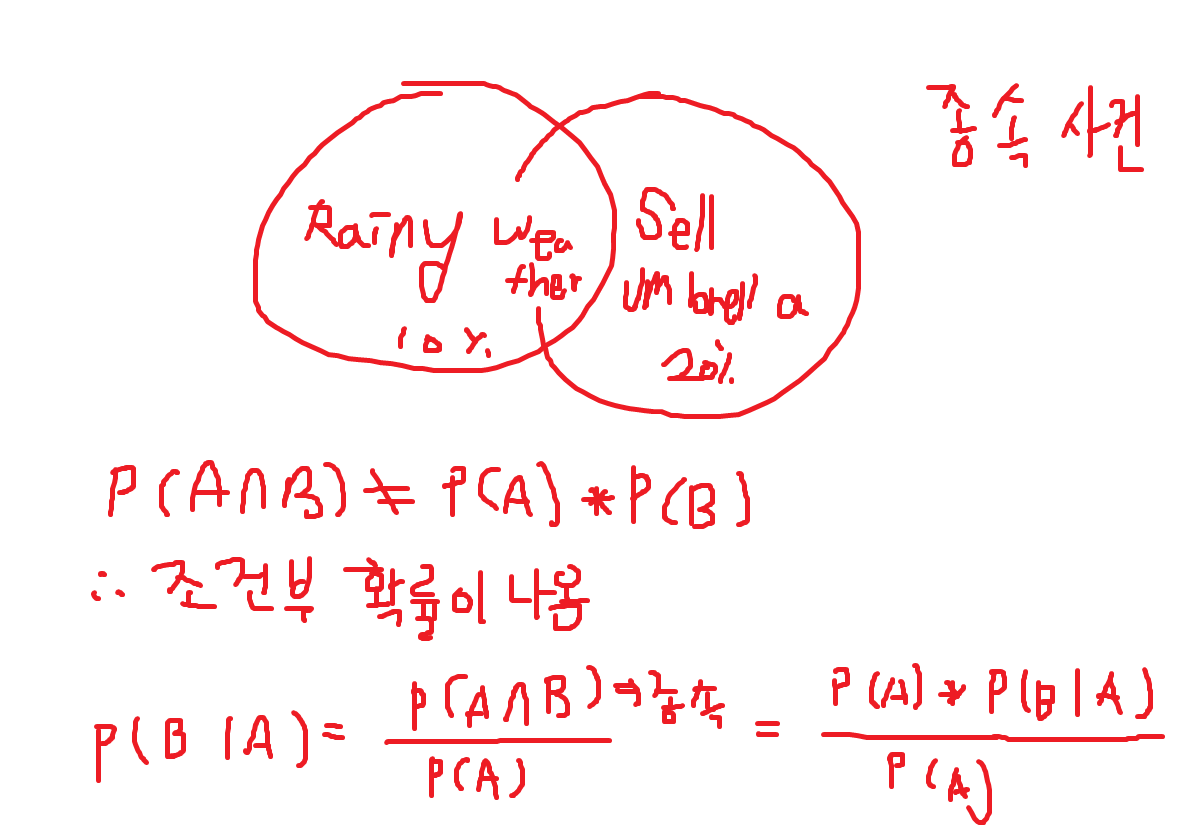 종속 사건
Rainy weather
10%
Sell
umbrella
20%
P(A∩B) ≠ P(A) * P(B)
∴ 조건부 확률이 나옴
P(B|A) = P(A∩B) → 종속 / P(A) = P(A) * P(B|A) / P(A)